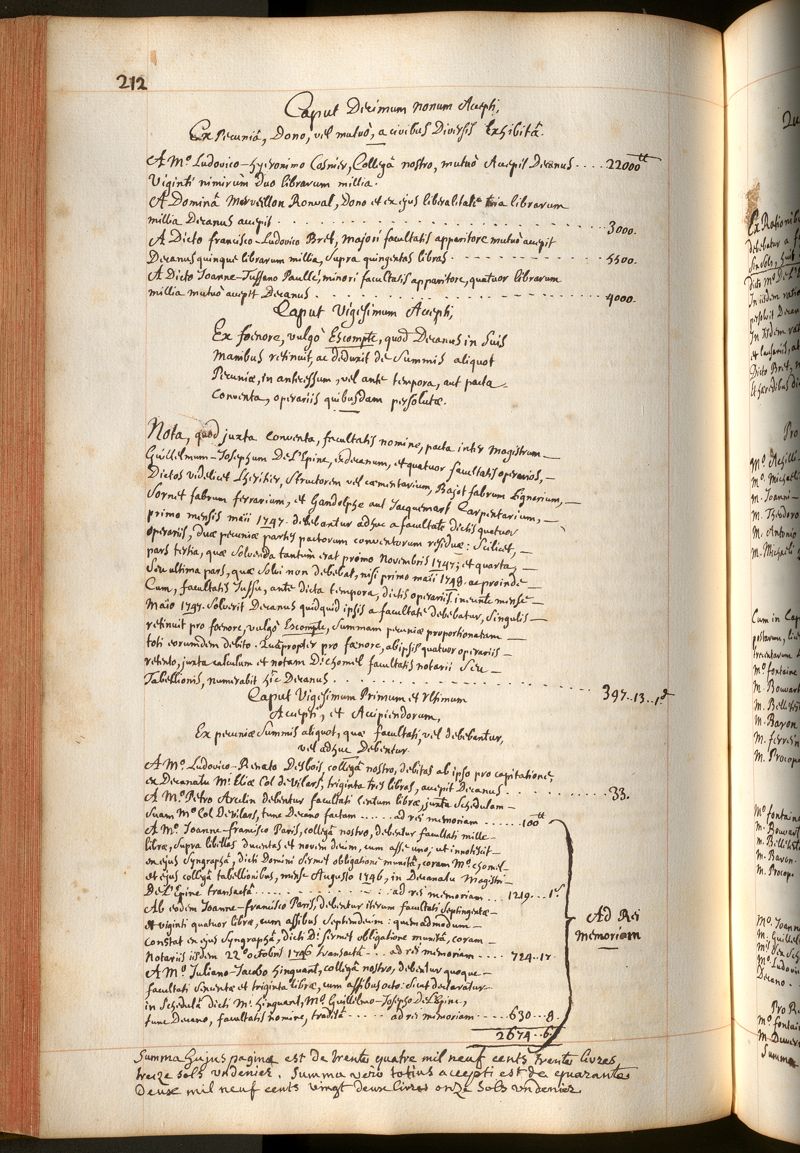 212
Caput Decimum nonum Accepti,
Ex Pecuniâ, Dono, vel mutuò, a civibus Diversis Exhibitâ.
A Mº. Ludovico-hyeronimo Cosnier, Collegâ nostro, mutuò Accepit Decanus .... 22000tt
Viginti nimirùm duo librarum millia.
A Dominâ Merveillon Ronval, Dono et ex ejus liberalitate tria librarum
millia Decanus accepit ................ 3000.
A Dicto francisco-Ludovico Bret, majori facultatis apparitore mutuò accepit
Decanus quinque librarum millia, supra quingentas libras ........ 5500.
A Dicto Joanne-Tussano Paullé, minori facultatis apparitore, quatuor librarum
millia mutuò accepit Decanus .............. 4000.
Caput Vigesimum Accepti,
Ex foenore, vulgò Escompte, quod Decanus in suis
Manibus retinuit, ac deduxit de Summis aliquot
Pecuniæ, in antecessum, vel ante tempora, aut pacta
Conventa, operariis quibusdam persolutæ.
Nota, quod juxta conventa, facultatis nomine, pacta inter Magistrum
Guillelmum-Josephum De L'Epine, exdecanum, et quatuor facultatis operarios,
Dictos videlicet Lheritier, Structorem vel cæmentarium, Bajot fabrum Lignarium,
Sornet fabrum ferrarium, et Gandolphe aut Jacquemart Carpentarium,
primo mensis maii 1747. debebantur adhuc a facultate dictis quatuor
operariis, duæ pecuniæ partes pactorum conventorum residuæ: scilicet,
pars tertia, quæ solvenda tantùm erat primo Novembris 1747; et quarta,
Seu ultima pars, quæ solvi non debebat, nisi primo maii 1748. ac proinde
Cum, facultatis Jussu, ante dicta tempora, dictis operariis ineunte mense
Maio 1747. Solverit Decanus quidquid ipsis a facultate debebatur, Singulis
retinuit pro foenore, vulgò Escompte, Summam pecuniæ proportionatam
toti eorumdem debito. Quapropter pro foenore, ab ipsis quatuor operariis
retento, juxta calculum et notam D. chomel facultatis notarii Seu
Tabellionis, numerabit hîc Decanus ............ 397..13..1d
Caput Vigesimum Primum et Ultimum
Accepti, et Accipiendorum,
Ex pecuniæ Summis aliquot, quæ facultati, vel debebantur,
vel adhuc Debentur.
A Mº. Ludovico-Renato Desbois, collegâ nostro, debitas ab ipso pro capitatione,
ex Decanatu Mi. Eliæ Col de Vilars, triginta tres libras, accepit Decanus ........ 33.
A Mº. Petro Arcelin debentur facultati Centum libræ, juxta schedulam
Suam Mº. Col De Vilars, tunc Decano factam ..... ad rei memoriam ...... 100tt
A Mº. Joanne-francisco Paris, collegâ nostro, debentur facultati mille
libræ, Supra libellas ducentas et novem decim, cum asse uno; ut innotescit
en ejus Syngraphâ, dicti Domini Sirmet obligatione munitâ, coram Mº. Chomel
et ejus collegâ tabellionibus, mense Augusto 1746, in Decanatu Magistri
De L'Epine transactâ ............ ad rei memoriam ... 1219...1s
Ab eodem Joanne-francisco Paris, debentur iterum facultati Septingentæ
et viginti quatuor libræ, cum assibus Septemdecim: quemadmodum
Constat en ejus Syngraphâ, dicti D. Sirmet obligatione munitâ, coram
Notariis iisdem 22º octobris 1746 transactâ ... ad rei memoriam .... 724..17.
A Mº. Juliano-Jacobo hinguant, collegâ nostro, debentur quoque
facultati Sexcentæ et triginta libræ, cum assibus octo: sicut declaratur
in Schedulâ dicti Mi. hinguant, Mº. Guillelmo-Josepho De L'Epine,
tunc Decano, facultatis nomine, traditâ ..... ad rei memoriam ..... 630..8.
2674..6s
Ad Rei
memoriam
Summa hujus paginæ est de trente quatre mil neuf cents trente livres,
treize sols un denier. Summa verò totius accepti est de quarante
Deux mil neuf cents vingt deux livres onze sols un denier